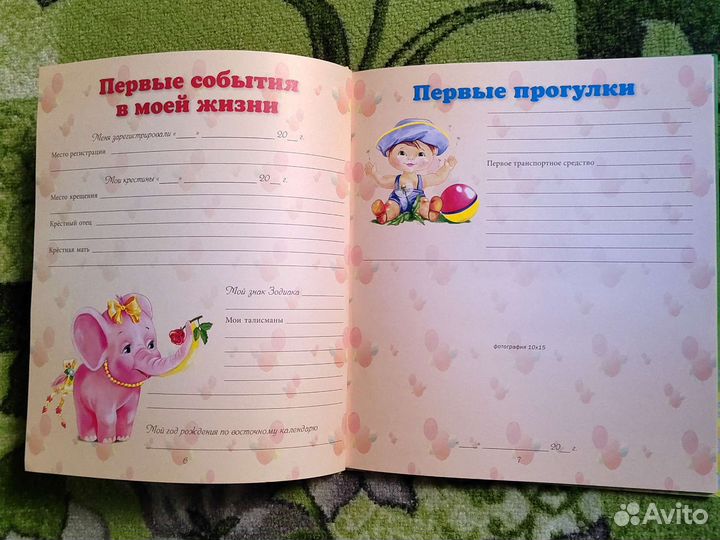 Первые события
в моей жизни
Меня зарегистрировали «____» ____________ 20__ г.
Место регистрации
Мои крестины «____» ____________ 20__ г.
Место крещения
Крёстный отец
Крёстная мать
Мой знак Зодиака
Мои талисманы
Мой год рождения по восточному календарю
6
Первые прогулки
Первое транспортное средство
фотография 10х15
«____» ____________ 20__ г.
7
Avito